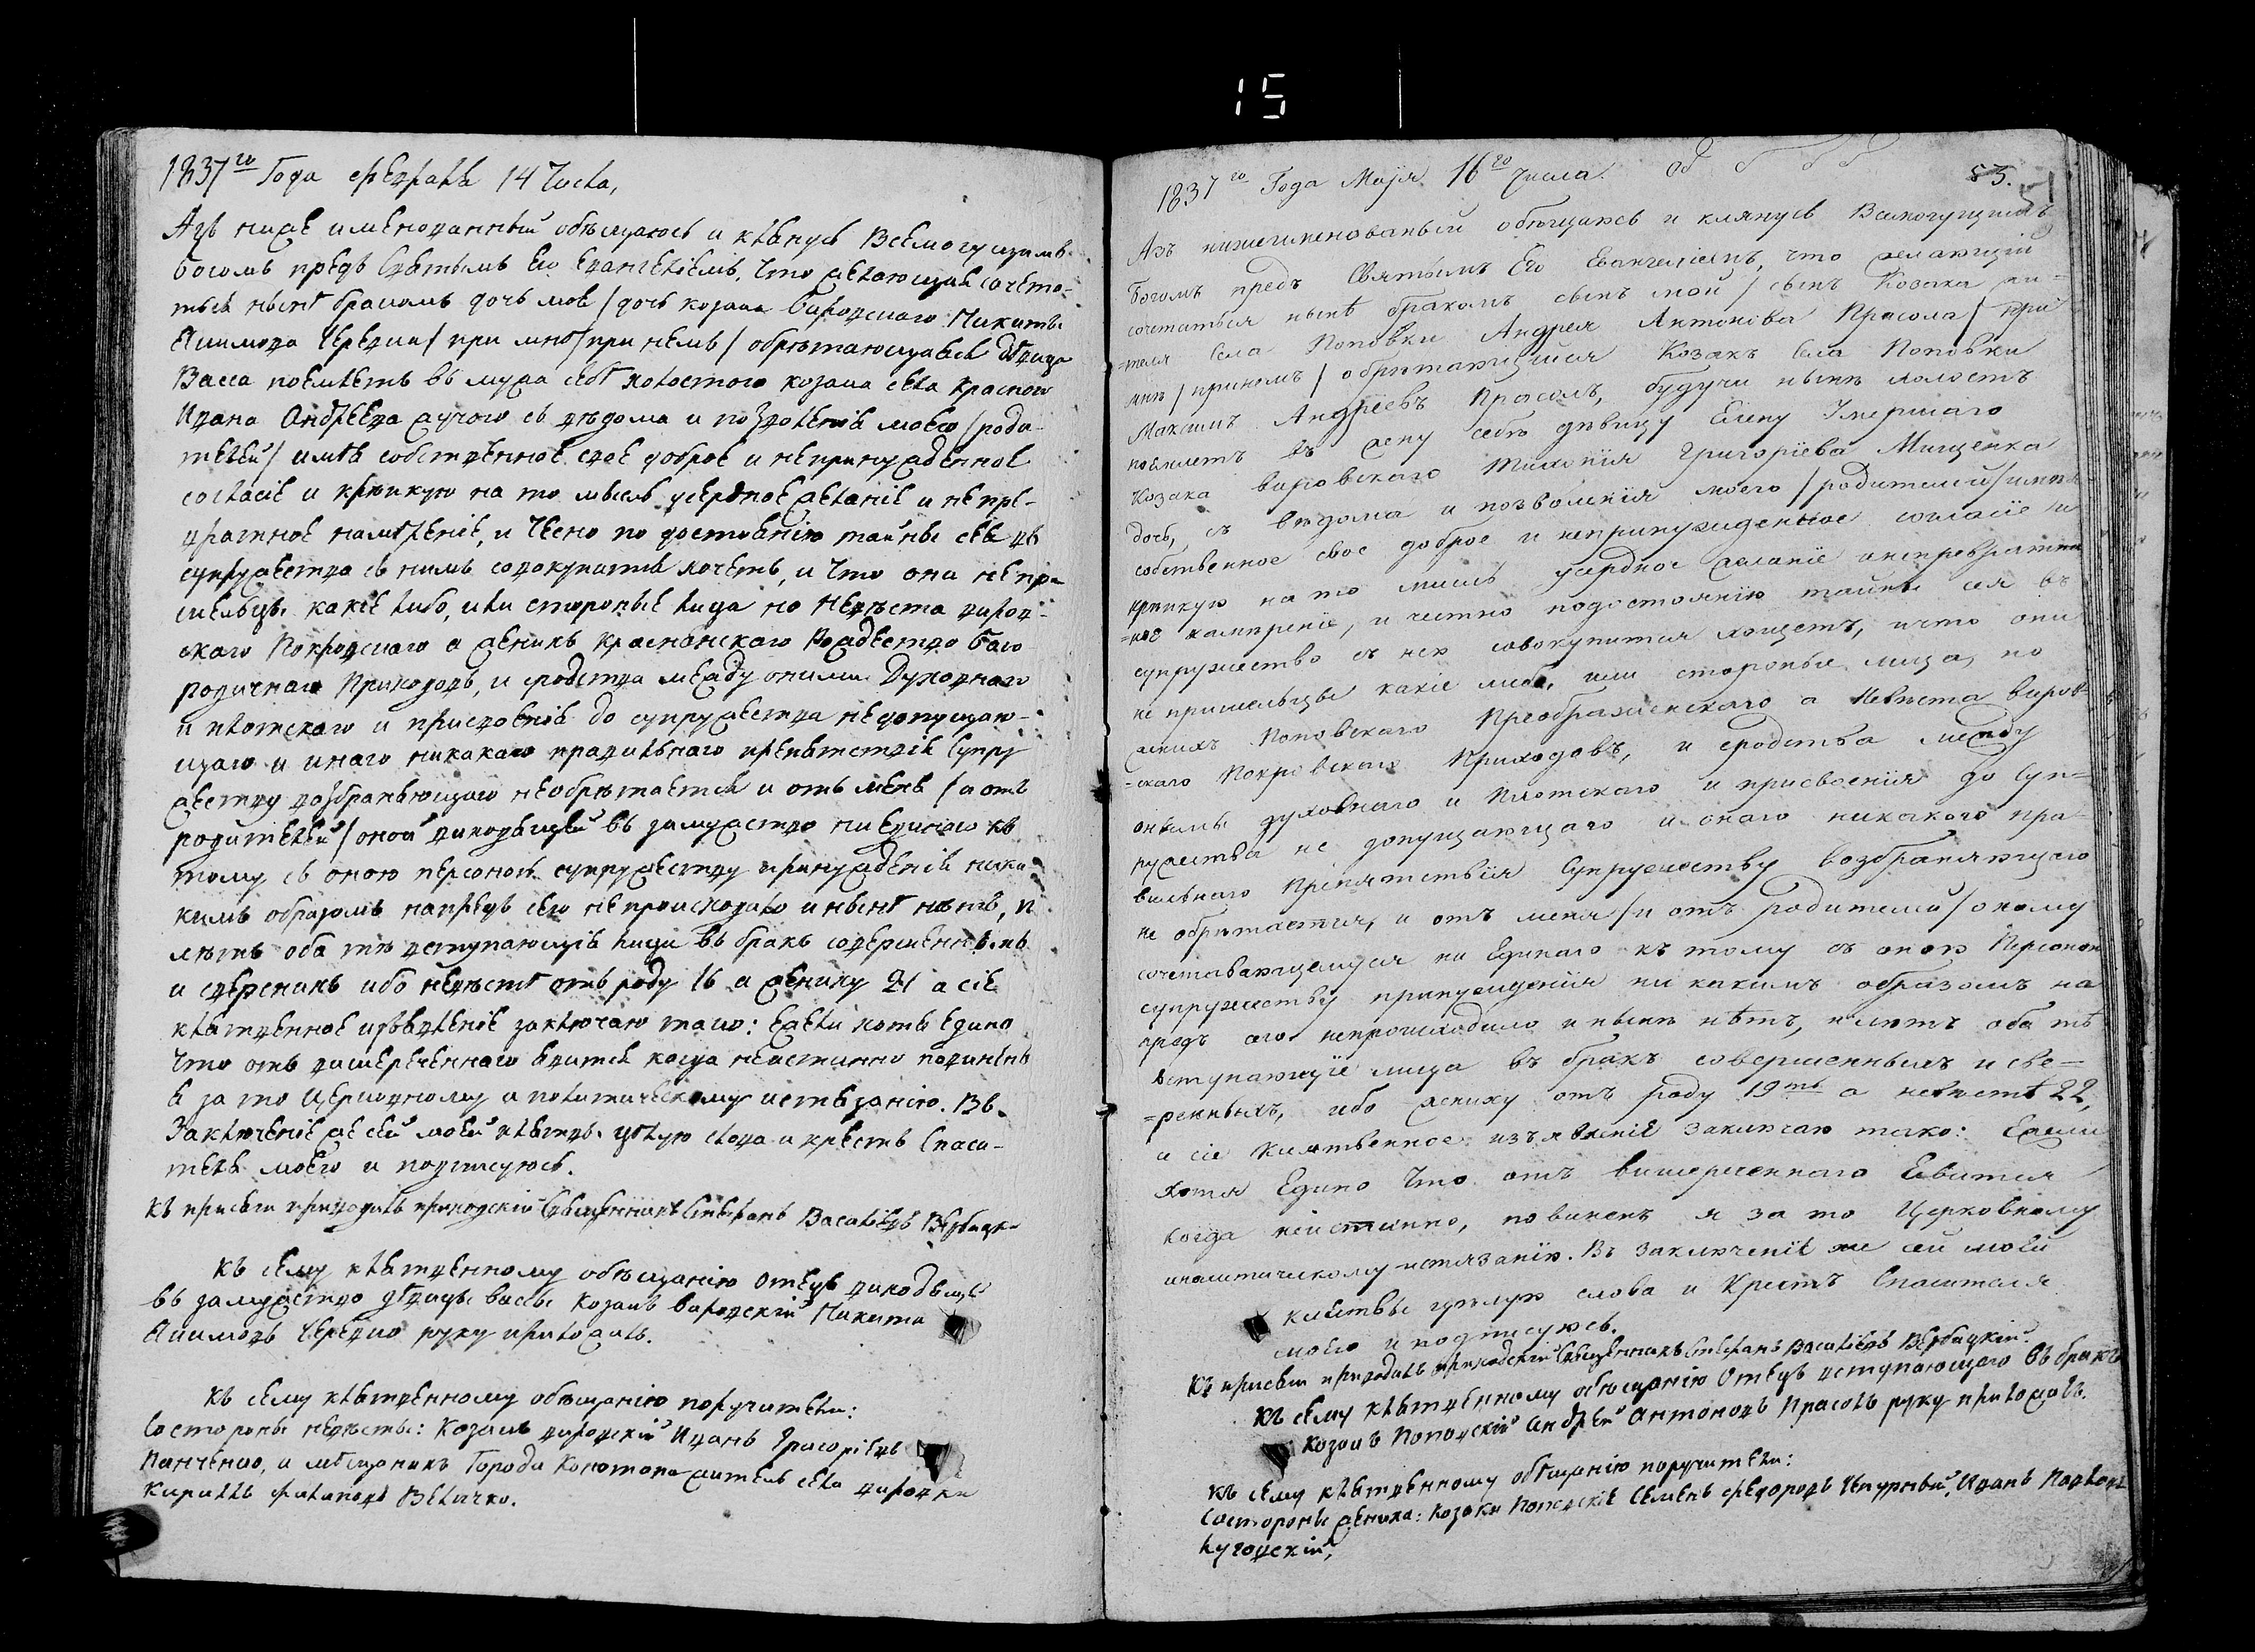 15
1837го Года февраля 14 Числа,
Азъ ниже именованный обѣщаюсь и клянусь Всемогущимъ
Богомъ предъ Святымъ Его Евангелїемъ, что желающая сочета-
ться нынѣ бракомъ дочь моя / дочь козака Вировского Никиты
Якимова Чередни / при мнѣ / при немъ / обрѣтающаяся дѣвица
Васса поемлетъ въ мужа себѣ холостого козака села Красного
Ивана Андреева съ вѣдома и позволенія моего / роди-
телей / имѣя собственное свое доброе и непринужденное
согласіе и крѣпкую на то мысль усердное желаніе и непре-
вратное намѣреніе, и чесно по достоянію тайны сея въ
супружество съ нимъ совокупится хочетъ, и что они не при
шельцы какіе либо, или стороныѣ лица но Невѣста виров-
ского Покровского а женихъ Краснянского Рождество Бого
родичнаго Приходовъ, и сродства между оними Духовнаго
и плотского и присвоенія до супружества недопущаю-
щаго и инаго никакаго правильнаго препятствія Супру
жеству возбраняющаго необрѣтается и отъ меня / и отъ
родителей / оной виходящей въ замужство ни единаго къ
тому съ оною персоною супружеству принужденія ника
кимъ образомъ напредъ сего не происходило и нынѣ нѣтъ, и
лѣтъ оба тѣ вступающія лица въ бракъ совершеннихъ
и сверснихъ ибо невѣстѣ отъ роду 16 а жениху 21 а сіе
клятвенное изъявленіе заключаю тако: Ежели хотя Едино
что отъ вишереченного явится когда неистинно повиненъ
я за то Церковному и политическому истязанію. Въ
Заключеніе же сей моей клятвы цѣлую слова и крестъ Спаси-
теля моего и подписуюсь.
Къ присяги приводилъ приходскій Священникъ Стефанъ Васильевъ Вербицкій
Къ сему клятвенному обѣщанію отецъ виходящей
въ замужство дѣвицы Вассы Козакъ Вировскій Никита
Якимовъ Чередно руку приложилъ.
Къ сему клятвенному обѣщанію поручители:
Состороны невѣсты: Козакъ вировскій Иванъ Григоріевъ
Панченко, и мѣщанинъ Города Конотопа житель села вировки
Кирилъ Филиповъ Величко.
1837го Года Маія 16го Числа.
83.
51
Азъ нижеименованый обѣщаюсь и клянусь Всемогущимъ
Богомъ предъ Святымъ Его Евангеліемъ, что желающій
сочетаться нынѣ бракомъ сынъ мой / сынъ Козака жи-
=теля Села Поповки Андрея Антонова Прасола / при
мнѣ / приномъ / обрѣтающійся Козакъ Села Поповки
Максимъ Андреевъ Прасолъ, будучи нынѣ холостъ
поемлетъ въ жену себѣ дѣвицу Елену Умершаго
Козака вировского Григоріева Мищенка
дочь, съ вѣдома и позволенія моего / родителей / имѣя
собственное свое доброе и непринужденное согласіе и
крѣпкую на то мысль усердное желаніе инепревратни
=ное намѣреніе, и честно подостоянію тайны сея въ
супружество съ нею совокупится хощетъ, ичто они
не пришельцы какіе либо, или стороные лица, но
женихъ Поповского Преображенского а Невѣста виров-
=ского Покровскаго Приходовъ, и сродства между
онымы духовнаго и Плотскаго и присвоенія до Суп-
ружества не допущающаго и онаго никакого пра-
вильнаго Препятствія Супружеству возбраняющаго
не обрѣтается, и отъ меня / и отъ родителей / оному
сочетавающемуся ни Единаго къ тому съ оною Персоною
супружеству принужденія ни какимъ образомъ на
предъ сего непроисходило и нынѣ нѣтъ, и лѣтъ оба тѣ
вступающіе лица въ бракъ совершенныхъ и све-
=рсныхъ, ибо жениху отъ роду 19ть а невѣстѣ 22,
а сіе Клятвенное изъявленіе заключаю тако: Ежели
хотя Едино Что отъ вишереченного Евится
когда неистинно, повиненъ я за то Церковному
иполитическому истязанію. Въ заключеніе же сей моей
клятвы цѣлую слова и Крестъ Спасителя
моего и подписуюсь.
Къ присяги приводилъ приходскій Священникъ Стефанъ Васильевъ Вербицкій.
Къ сему клятвенному обѣщанію Отецъ вступающого въ бракъ
Козакъ Поповскій Андрей Антоновъ Прасолъ руку приложилъ.
Къ сему клятвенному обѣщанію поручители:
Состороны жениха: Козаки Поповскіе Семенъ Федоровъ Чепурный, Иванъ Павловъ
Луговскій,